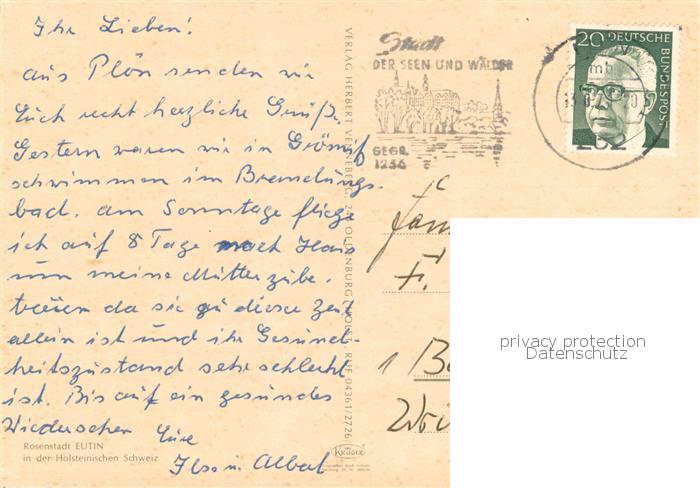 Ihr Lieben!
aus Plön senden wir
Euch recht herzliche Grüße.
Gestern waren wir in Grömitz
schwimmen im Brandungs-
bad. am Sonntage fliege
ich auf 8 Tage nach Haus
um meine Mütter zube-
treuen da sie zu dieser Zeit
allein ist und ihr Gesund-
heitszustand sehr schlecht
ist. Bis auf ein gesundes
Wiedersehen Eure
Ilse u. Albert
Rosenstadt EUTIN
in der Holsteinischen Schweiz
VERLAG HERBERT VENNEBERG, 24 OLDENBURG HOLST., RUF 04361/2726
KRÜGER
Stadt
DER SEEN UND WÄLDER
GEGR.
1256
20 DEUTSCHE
BUNDESPOST
Fam
F.
1 Be
privacy protection
Datenschutz